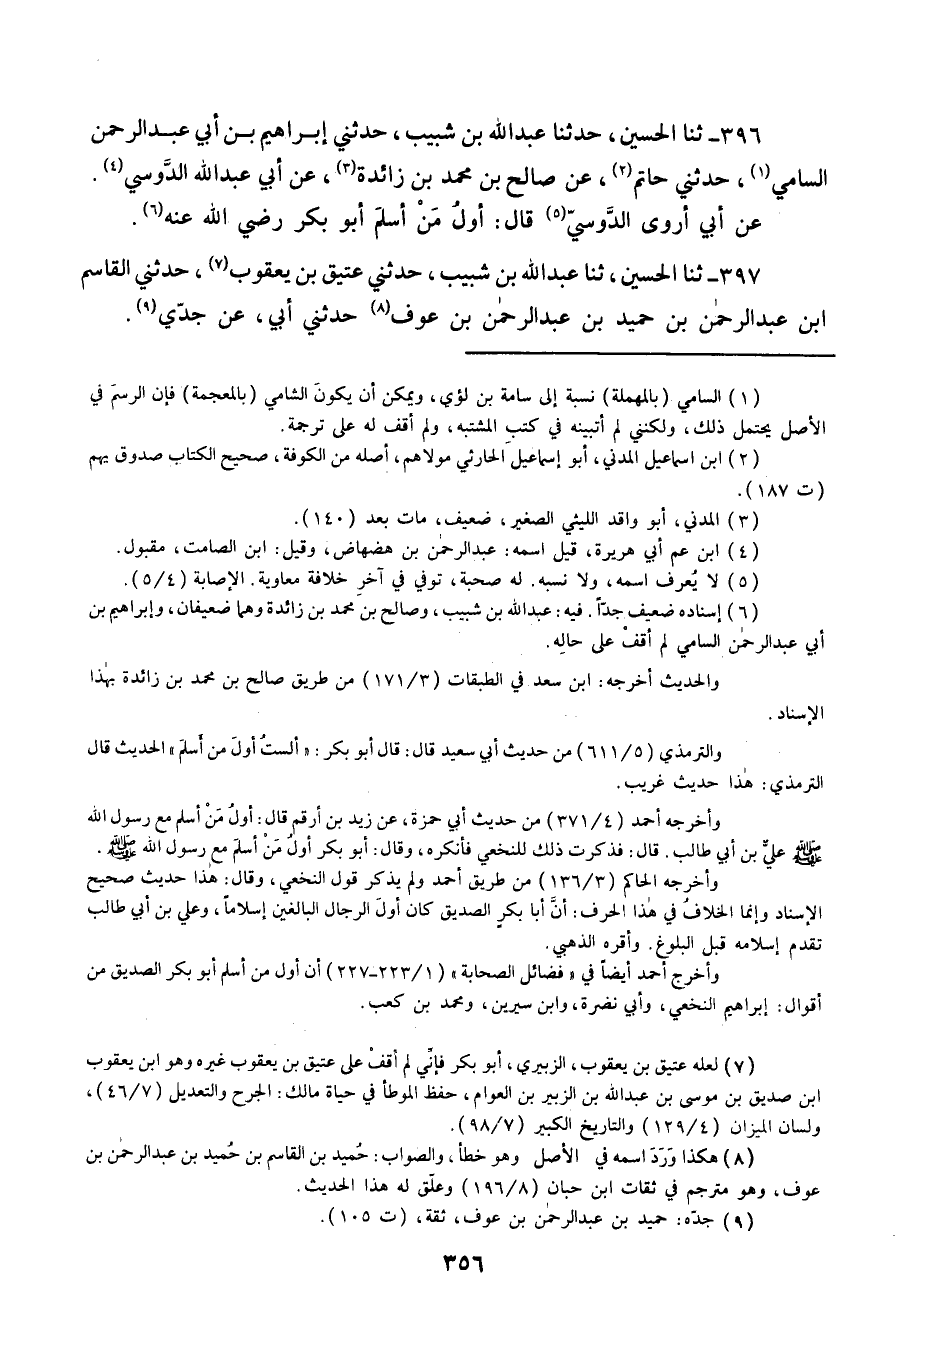 ٣٩٦ـ ثنا الحسين، حدثنا عبدالله بن شبيب، حدثني إبراهيم بن أبي عبدالرحمن
السامي(١)، حدثني حاتم(٢)، عن صالح بن محمد بن زائدة(٣)، عن أبي عبدالله الدَّوسي(٤).
عن أبي أروى الدَّوسيّ(٥) قال: أولُ مَنْ أسلمَ أبو بكر رضي الله عنه(٦).
٣٩٧ـ ثنا الحسين، ثنا عبدالله بن شبيب، حدثني عتيق بن يعقوب(٧)، حدثني القاسم
ابن عبدالرحمٰن بن حميد بن عبدالرحمٰن بن عوف(٨) حدثني أبي، عن جدّي(٩).
(١) السامي (بالمهملة) نسبة إلى سامة بن لؤي، ويمكن أن يكونَ الشامي (بالمعجمة) فإن الرسمَ في
الأصل يحتمل ذلك، ولكنني لم أتبينه في كتبِ المشتبه، ولم أقف له على ترجمة.
(٢) ابن اسماعيل المدني، أبو إسماعيل الحارثي مولاهم، أصله من الكوفة، صحيح الكتاب صدوق يهم
(ت ١٨٧).
(٣) المدني، أبو واقد الليثي الصغير، ضعيف، مات بعد (١٤٠).
(٤) ابن عم أبي هريرة، قيل اسمه: عبدالرحمٰن بن هضهاض، وقيل: ابن الصامت، مقبول.
(٥) لا يُعرف اسمه، ولا نسبه. له صحبة، توفي في آخرِ خلافة معاوية. الإصابة (٥/٤).
(٦) إسناده ضعيف جدّاً. فيه: عبدالله بن شبيب، وصالح بن محمد بن زائدة وهما ضعيفان، وإبراهيم بن
أبي عبدالرحمٰن السامي لم أقفْ على حالِه.
والحديث أخرجه: ابن سعد في الطبقات (١٧١/٣) من طريق صالح بن محمد بن زائدة بهٰذا
الإسناد.
والترمذي (٦١١/٥) من حديث أبي سعيد قال: قال أبو بكر: «ألستُ أولَ من أسلمَ» الحديث قال
الترمذي: هٰذا حديث غريب.
وأخرجه أحمد (٣٧١/٤) من حديث أبي حمزة، عن زيد بن أرقم قال: أولُ مَنْ أسلم مع رسول الله
ﷺ عليُّ بن أبي طالب. قال: فذكرت ذلك للنخعي فأنكره، وقال: أبو بكر أولُ مَنْ أسلمَ مع رسول الله ﷺ.
وأخرجه الحاكم (١٣٦/٣) من طريق أحمد ولم يذكر قول النخعي، وقال: هٰذا حديث صحيح
الإسناد وإنما الخلافُ في هٰذا الحرف: أنَّ أبا بكرٍ الصديق كان أولَ الرجال البالغين إسلاماً، وعلي بن أبي طالب
تقدم إسلامه قبل البلوغ. وأقره الذهبي.
وأخرج أحمد أيضاً في «فضائل الصحابة» (٢٢٣/١-٢٢٧) أن أول من أسلم أبو بكر الصديق من
أقوال: إبراهيم النخعي، وأبي نضرة، وابن سيرين، ومحمد بن كعب.
(٧) لعله عتيق بن يعقوب، الزبيري، أبو بكر فإنّي لم أقفْ على عتيق بن يعقوب غيره وهو ابن يعقوب
ابن صديق بن موسى بن عبدالله بن الزبير بن العوام، حفظ الموطأ في حياة مالك: الجرح والتعديل (٤٦/٧)،
ولسان الميزان (١٢٩/٤) والتاريخ الكبير (٩٨/٧).
(٨) هكذا وَرَدَ اسمه في الأصل وهو خطأ، والصواب: حُميد بن القاسم بن حُميد بن عبدالرحمٰن بن
عوف، وهو مترجم في ثقات ابن حبان (١٩٦/٨) وعلّق له هذا الحديث.
(٩) جدّه: حميد بن عبدالرحمٰن بن عوف، ثقة، (ت ١٠٥).
٣٥٦